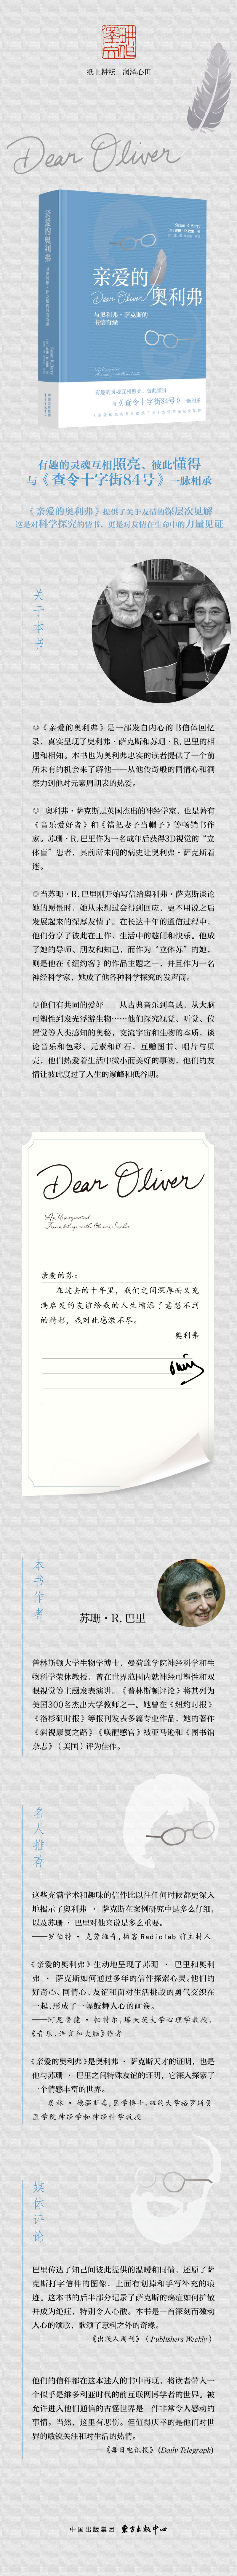 纸上耕耘 润泽心田
Dear Oliver
亲爱的奥利弗
Susan R. Barry
亲爱的
Dear Oliver
奥利弗
与奥利弗·萨克斯的
书信奇缘
有趣的灵魂互相照亮、彼此懂得
与《查令十字街84号》一脉相承
有趣的灵魂互相照亮、彼此懂得
与《查令十字街84号》一脉相承
《亲爱的奥利弗》提供了关于友情的深层次见解
这是对科学探究的情书，更是对友情在生命中的力量见证
关于本书
◎《亲爱的奥利弗》是一部发自内心的书信体回忆
录，真实呈现了奥利弗·萨克斯和苏珊·R. 巴里的相
遇和相知。本书也为奥利弗忠实的读者提供了一个前
所未有的机会来了解他——从他传奇般的同情心和洞
察力到他对元素周期表的热爱。
◎ 奥利弗·萨克斯是英国杰出的神经学家，也是著有
《音乐爱好者》和《错把妻子当帽子》等畅销书作
家。苏珊·R. 巴里作为一名成年后获得3D视觉的“立
体盲”患者，其前所未闻的病史让奥利弗·萨克斯着
迷。
◎当苏珊·R. 巴里刚开始写信给奥利弗·萨克斯谈论
她的愿景时，她从未想过会得到回应，更不用说之后
发展起来的深厚友情了。在长达十年的通信过程中，
他们分享了彼此在工作、生活中的趣闻和快乐。他成
了她的导师、朋友和知己，而作为“立体苏”的她，
则是他在《纽约客》的作品主题之一，并且作为一名
神经科学家，她成了他各种科学探究的发声筒。
◎他们有共同的爱好——从古典音乐到乌贼，从大脑
可塑性到发光浮游生物……他们探究视觉、听觉、位
置觉等人类感知的奥秘，交流宇宙和生物的本质，谈
论音乐和色彩、元素和矿石，互赠图书、唱片与贝
壳，他们热爱着生活中微小而美好的事物，他们的友
情让彼此度过了人生的巅峰和低谷期。
Dear Oliver
An Unexpected
Friendship with Oliver Sacks
亲爱的苏：
在过去的十年里，我们之间深厚而又充
满启发的友谊给我的人生增添了意想不到
的精彩，我对此感激不尽。
奥利弗
本书作者
苏珊·R. 巴里
普林斯顿大学生物学博士，曼荷莲学院神经科学和生
物科学荣休教授，曾在世界范围内就神经可塑性和双
眼视觉等主题发表演讲。《普林斯顿评论》将其列为
美国300名杰出大学教师之一。她曾在《纽约时报》
《洛杉矶时报》等报刊发表多篇专业作品，她的著作
《斜视康复之路》《唤醒感官》被亚马逊和《图书馆
杂志》（美国）评为佳作。
名人推荐
这些充满学术和趣味的信件比以往任何时候都更深入
地揭示了奥利弗 · 萨克斯在案例研究中是多么仔细，
以及苏珊 · 巴里对他来说是多么重要。
——罗伯特 · 克劳维奇，播客 Radiolab 前主持人
《亲爱的奥利弗》生动地呈现了苏珊 · 巴里和奥利
弗 · 萨克斯如何通过多年的信件探索心灵。他们的
好奇心、同情心、友谊和面对生活挑战的勇气交织在
一起，形成了一幅鼓舞人心的画卷。
——阿尼鲁德 · 帕特尔，塔夫茨大学心理学教授，
《音乐、语言和大脑》作者
《亲爱的奥利弗》是奥利弗 · 萨克斯天才的证明，也是
他与苏珊 · 巴里之间特殊友谊的证明，它深入探索了
一个情感丰富的世界。
——奥林 · 德温斯基，医学博士，纽约大学格罗斯曼
医学院神经学和神经科学教授
媒体评论
巴里传达了知己间彼此提供的温暖和同情，还原了萨
克斯打字信件的图像，上面有划掉和手写补充的痕
迹。这本书的后半部分记录了萨克斯的癌症如何扩散
并成为绝症，特别令人心酸。本书是一首深刻而激动
人心的颂歌，歌颂了意料之外的奇缘。
——《出版人周刊》（Publishers Weekly）
他们的信件都在这本迷人的书中再现，将读者带入一
个似乎是维多利亚时代的前互联网博学者的世界。被
允许进入他们通信的古怪世界是一件非常令人感动的
事情。当然，这里有悲伤。但值得庆幸的是他们对世
界的敏锐关注和对生活的热情。
——《每日电讯报》(Daily Telegraph)
中国出版集团 东方出版中心